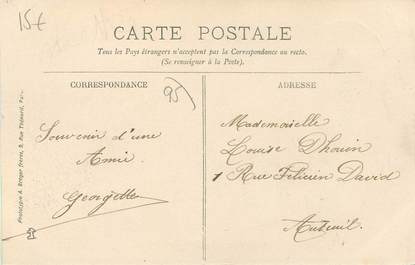 15€
CARTE POSTALE
Tous les Pays étrangers n'acceptent pas la Correspondance au recto.
(Se renseigner à la Poste).
CORRESPONDANCE
95
ADRESSE
Souvenir d'une
Amie
Georgette
Mademoiselle
Louise Dhouin
1 Rue Félicien David
Auteuil.
Phototypie A. Breger frères, 9, Rue Thénard,